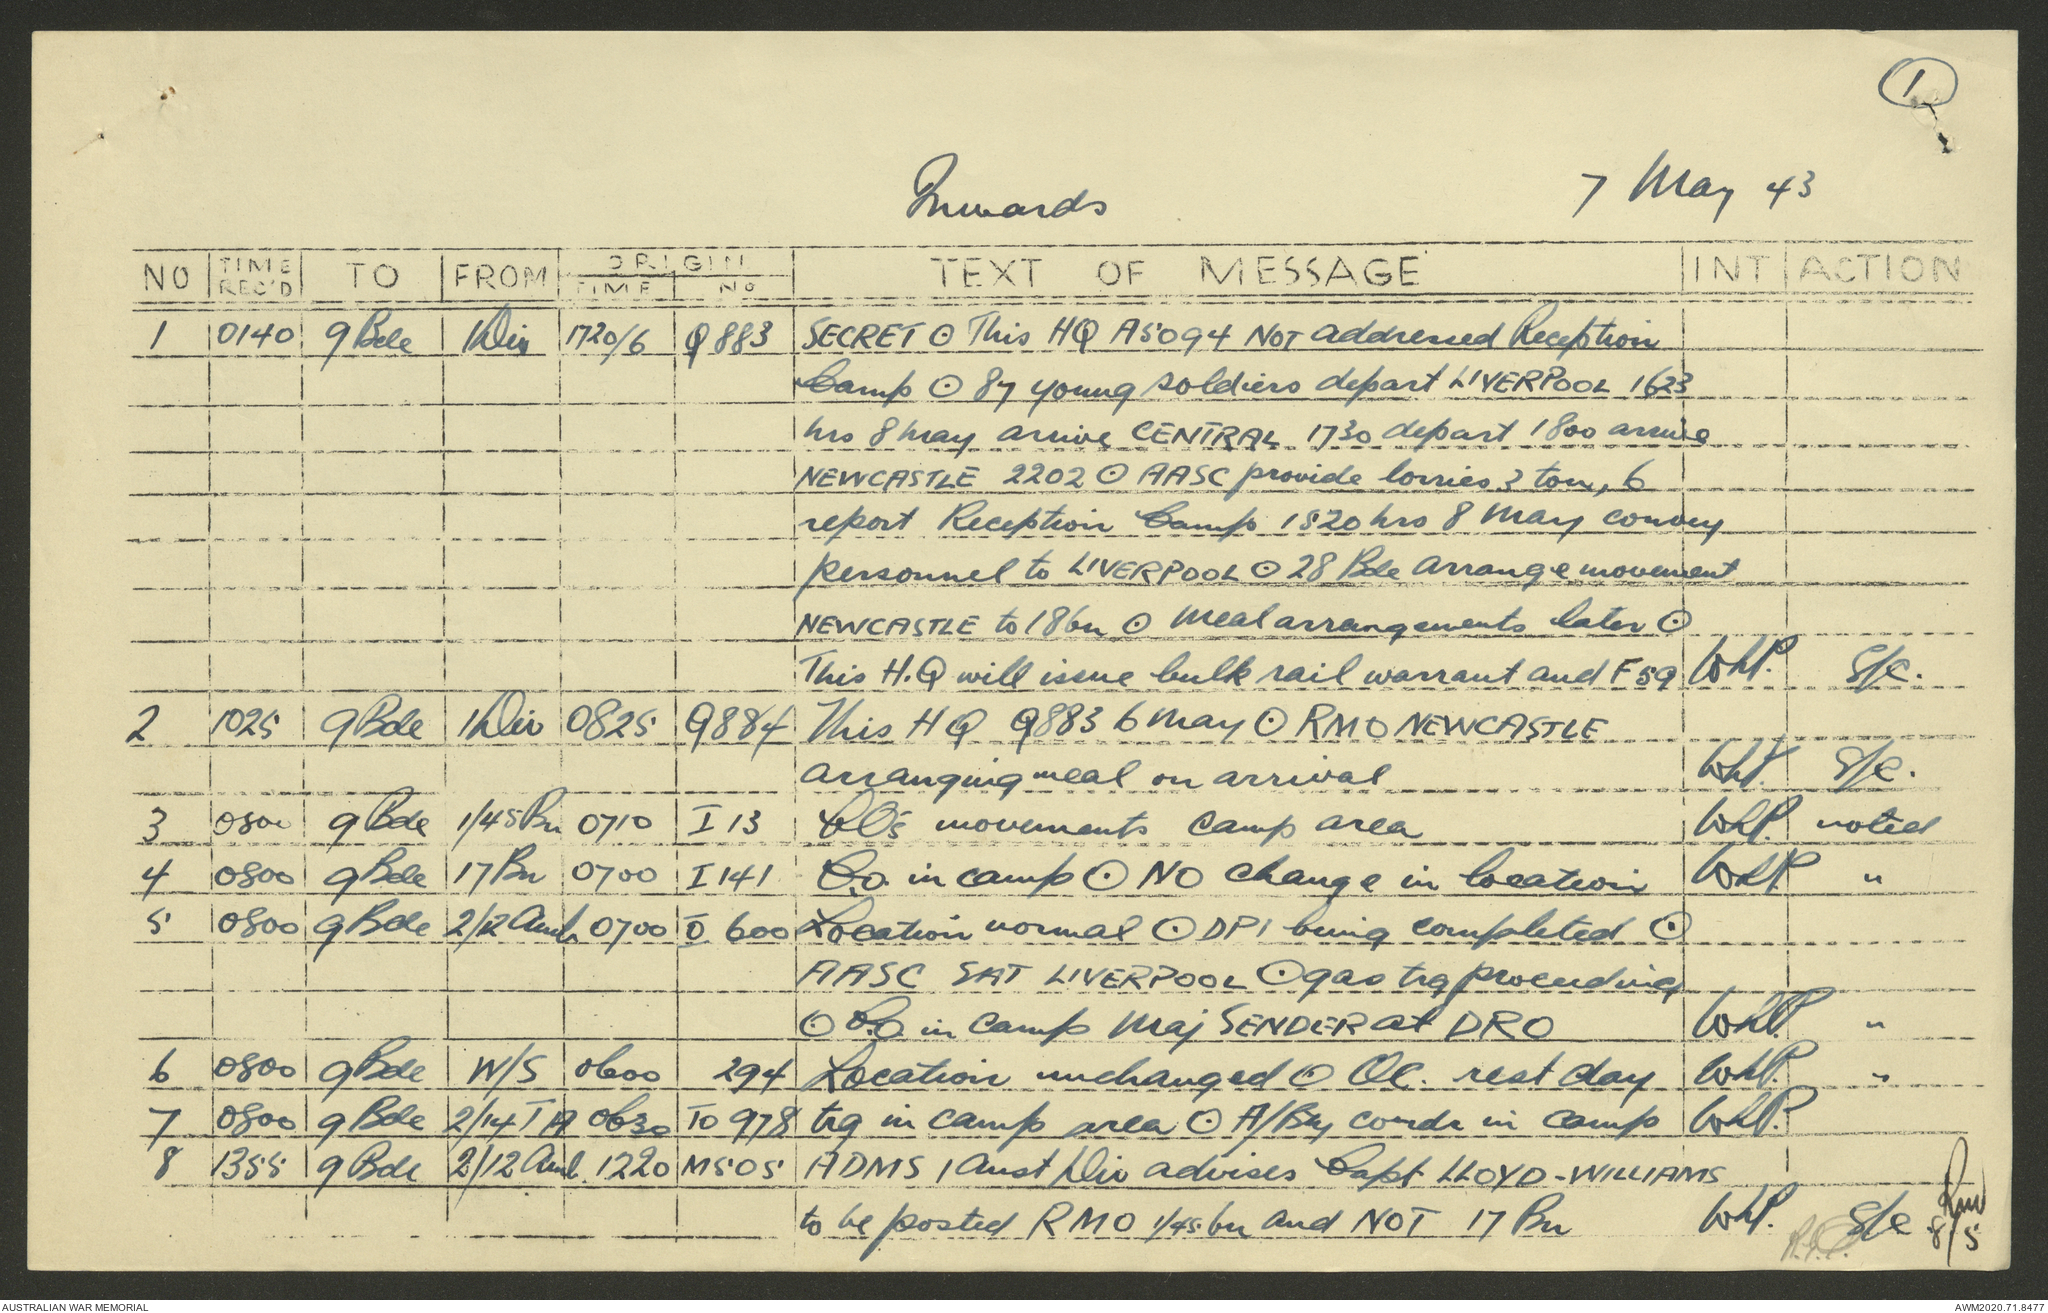 1
Inwards
7 May 43
NO TIME REC'D TO FROM ORIGIN TIME NO TEXT OF MESSAGE INT ACTION
1 0140 9 Bde 1 Div 1720/6 Q883 SECRET ⊙ This HQ A5094 NOT addressed Reception
Camp ⊙ 87 young soldiers depart LIVERPOOL 1623
hrs 8 May arrive CENTRAL 1730 depart 1800 arrive
NEWCASTLE 2202 ⊙ AASC provide lorries 3 ton, 6
report Reception Camp 1520 hrs 8 May convey
personnel to LIVERPOOL ⊙ 28 Bde arrange movement
NEWCASTLE to 18 bn ⊙ Meal arrangements later ⊙
This H.Q will issue bulk rail warrant and F59 WhP. S/c.
2 1025 9 Bde 1 Div 0825 Q884 This HQ Q883 6 May ⊙ RMO NEWCASTLE
arranging meal on arrival WhP. S/c.
3 0800 9 Bde 1/45 Bn 0710 I 13 CO's movements camp area WhP. noted
4 0800 9 Bde 17 Bn 0700 I 141 C.O. in camp ⊙ NO change in location WhP "
5 0800 9 Bde 2/12 Amb 0700 O 600 Location normal ⊙ DP1 being completed ⊙
AASC SAT LIVERPOOL ⊙ gas trg proceeding
⊙ C.O. in camp Maj SENDER at DRO WhP. "
6 0800 9 Bde W/S 0600 294 Location unchanged ⊙ OC. rest day WhP. "
7 0800 9 Bde 2/14 FA 0630 IO 978 trg in camp area ⊙ A/Bty comdr in camp WhP.
8 1355 9 Bde 2/12 Amb. 1220 M505 ADMS 1 Aust Div advises Capt LLOYD-WILLIAMS
to be posted RMO 1/45 bn and NOT 17 Bn WhP. S/c
8/5
AUSTRALIAN WAR MEMORIAL
AWM2020.71.8477